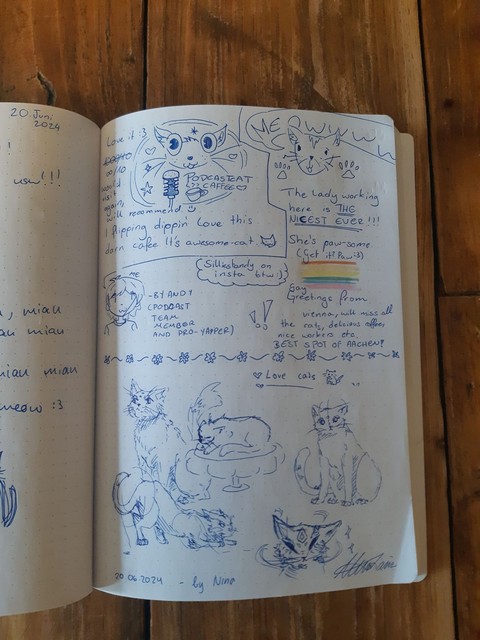 20. Juni
2024
now!!!
, miau
au miau
miau miau
meow :3
Love it :3
00/10
would
visit
again,
will recommend. :)
PODCASTCAT
COFFEE♡
I flipping dippin' love this
darn cafe. It's awesome-cat.
MEOWWWWW
The lady working
here is THE
NICEST EVER!!!
She's paw-some.
(Get it? Paw :3)
Gay
Greetings from
vienna, will miss all
the cats, delicious coffee,
nice workers etc.
BEST SPOT OF AACHEN!
(Silkeslandy on
insta btw :)
ME
- BY ANDY
(PODCAST
TEAM
MEMBER
AND PRO-YAPPER)
♡ Love cats
20.06.2024 - by Nina